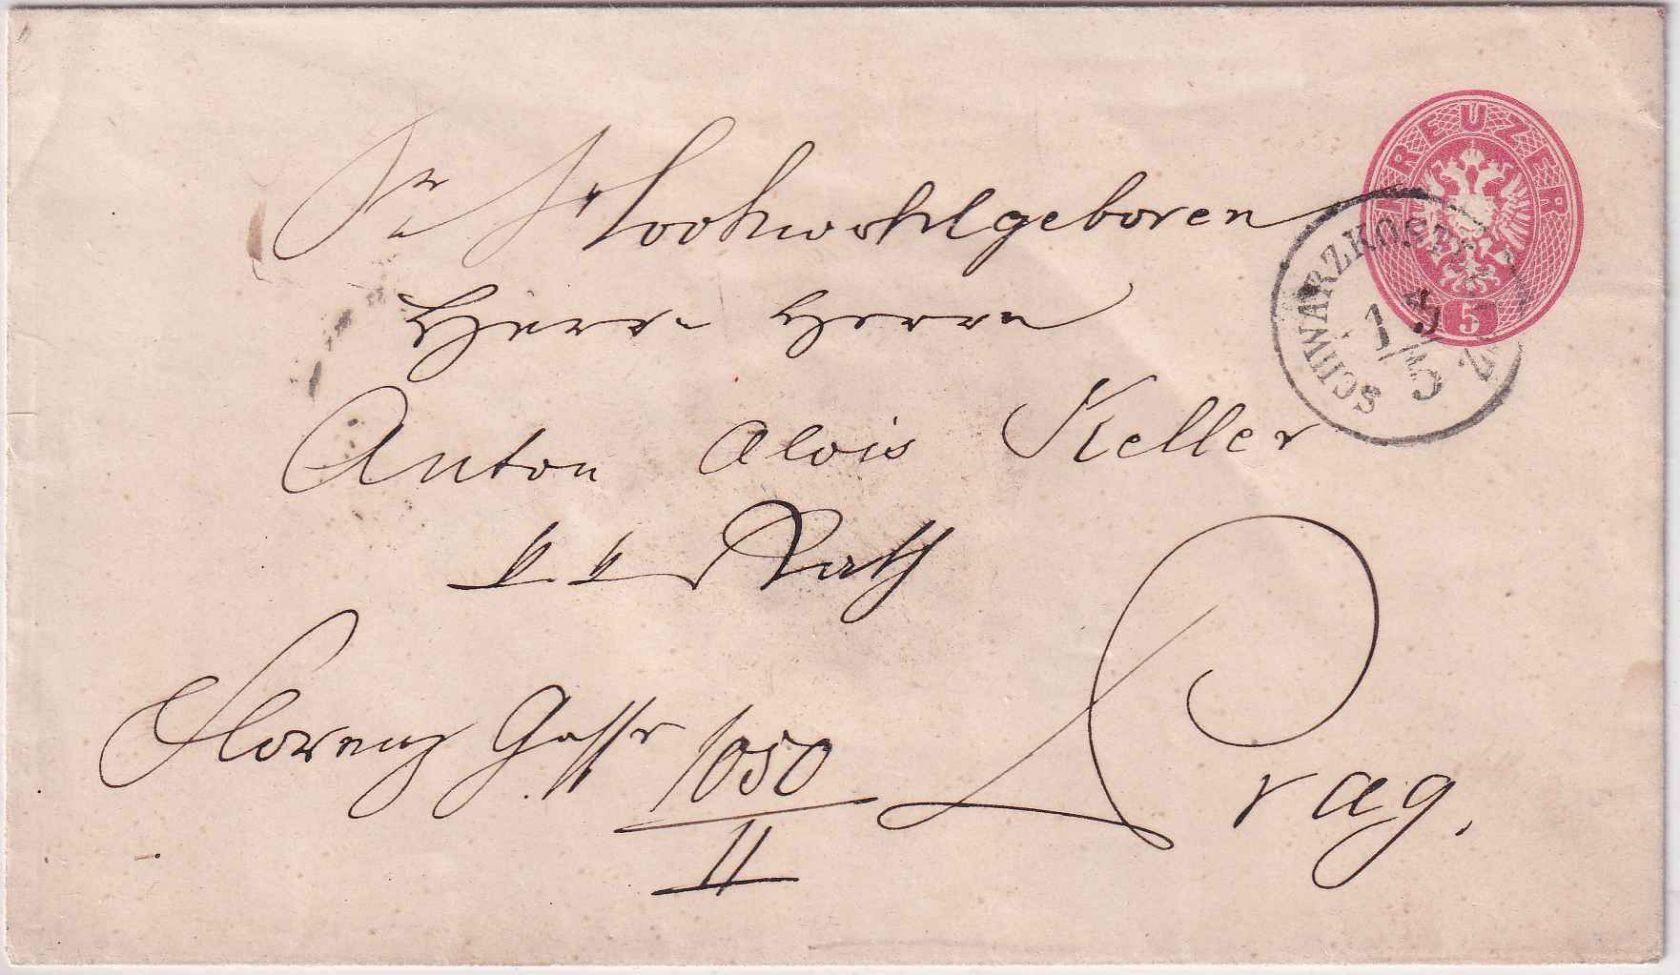 Sr Hochwohlgeboren
Herrn Herrn
Anton Alois Keller
k k Rath
Florenz Gasse 1050
II
Prag.
KREUZER
5
SCHWARZKOSTELETZ
1
5